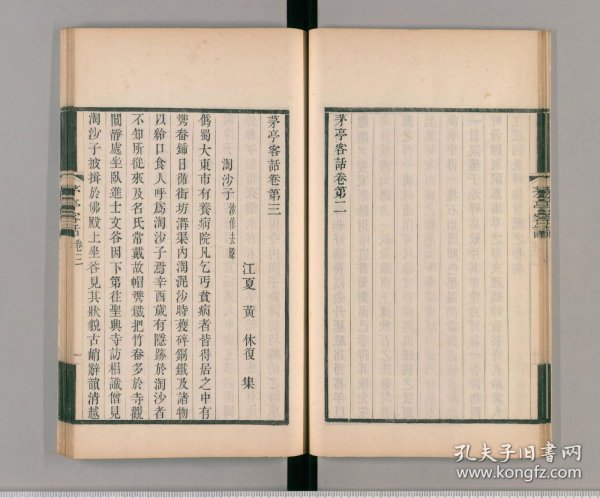 茅亭客話卷第二
茅亭客話卷第三
江夏 黃 休復 集
淘沙子
僞蜀大東市有養病院凡乞丐貧病者皆得居之中有
攜畚鍤日循街坊溝渠內淘泥沙時獲碎銅鐵及諸物
以給口食人呼爲淘沙子焉辛酉歲有隱跡於淘沙者
不知所從來及名氏常戴故帽攜鐵把竹畚多於寺觀
閒靜處坐臥進士文谷因下第往聖興寺訪相識僧見
淘沙子披揖於佛殿上坐谷見其狀貌古峭辭韻清越
茅亭客話 卷三
一
孔夫子旧书网
www.kongfz.com